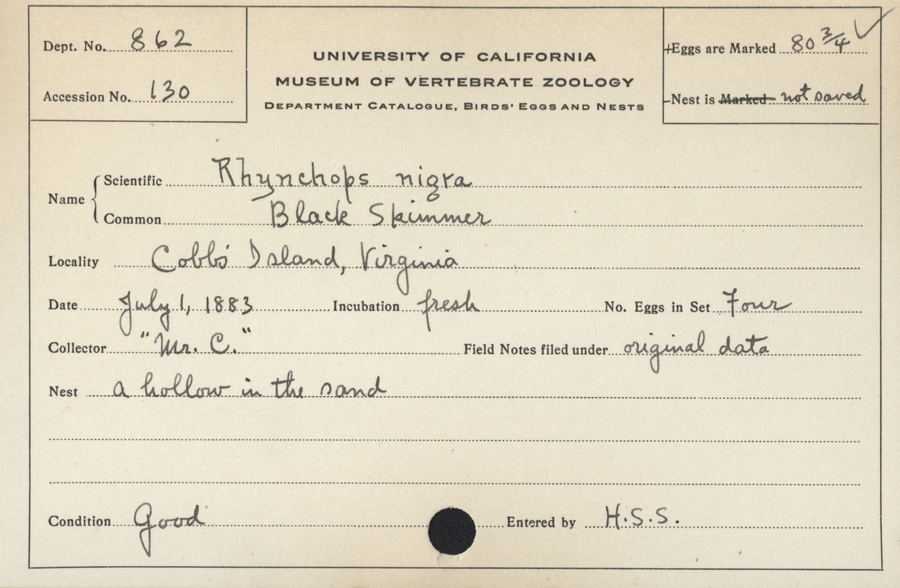 Dept. No. 862
Accession No. 130
UNIVERSITY OF CALIFORNIA
MUSEUM OF VERTEBRATE ZOOLOGY
DEPARTMENT CATALOGUE, BIRDS' EGGS AND NESTS
Eggs are Marked 80 3/4 ✓
Nest is Marked not saved
Name { Scientific Rhynchops nigra
Common Black Skimmer
Locality Cobb's Island, Virginia
Date July 1, 1883 Incubation fresh No. Eggs in Set Four
Collector "Mr. C." Field Notes filed under original data
Nest a hollow in the sand
Condition Good Entered by H.S.S.